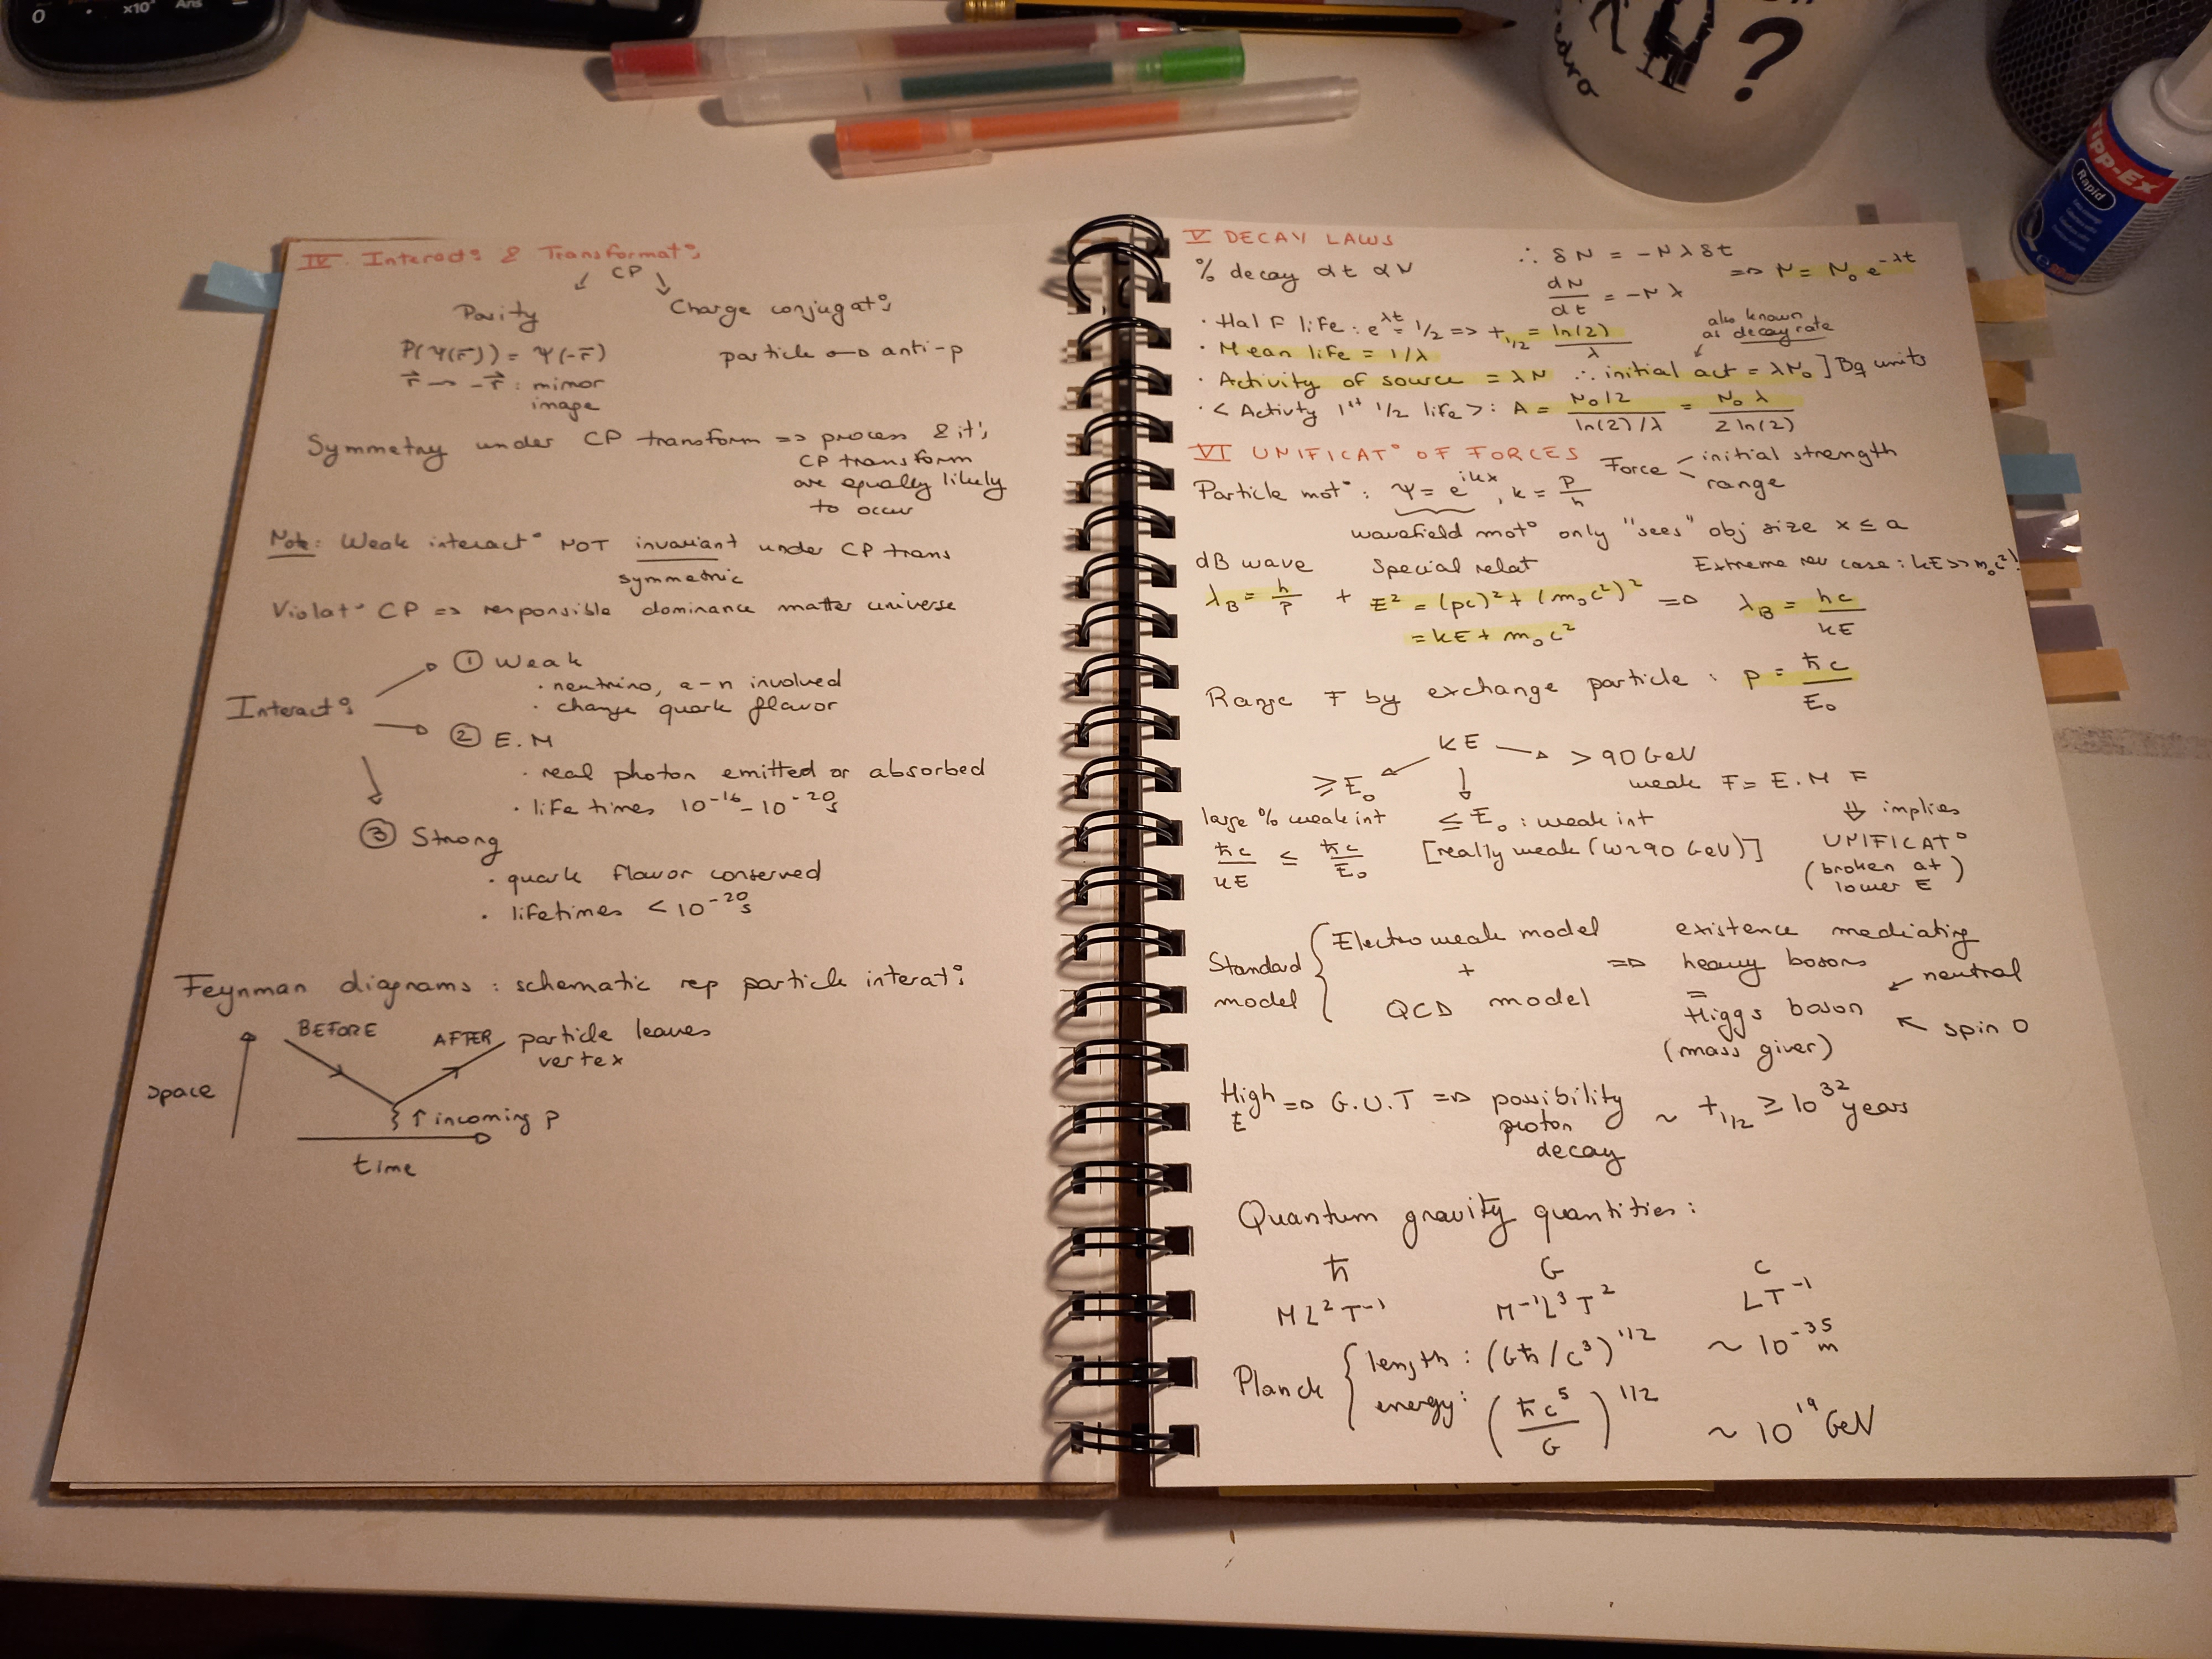 IV. Interact°s & Transformat°s
↙ CP ↘
Parity
Charge conjugat°s
P(Ψ(r⃗)) = Ψ(-r⃗)
particle ↔ anti-p
r⃗ → -r⃗ : mirror
image
Symmetry under CP transform => process & it's
CP transform
are equaly likely
to occur
Note: Weak interact° NOT invariant under CP trans
symmetric
Violat° CP => responsible dominance matter universe
Interact°s
① Weak
· neutrino, e-n involved
· change quark flavor
② E.M
· real photon emitted or absorbed
· life times 10⁻¹⁶ - 10⁻²⁰ s
③ Strong
· quark flavor conserved
· lifetimes < 10⁻²⁰ s
Feynman diagrams : schematic rep particle interat°s
BEFORE AFTER
particle leaves
vertex
space
↑ incoming p
time
V DECAY LAWS
% decay dt dN ∴ δN = -Nλδt => N = N₀e^-λt
dN/dt = -Nλ
· Half life : e^λt = 1/2 => t 1/2 = ln(2)/λ
also known
as decay rate
· Mean life = 1/λ
· Activity of source = λN ∴ initial act = λN₀ ] Bq units
· < Activity 1st 1/2 life > : A = N₀/2 / ln(2)/λ = N₀λ / 2ln(2)
VI UNIFICAT° OF FORCES
Force < initial strength
range
Particle mot° : Ψ = e^ikx , k = p/ħ
wavefield mot° only "sees" obj size x ≤ a
dB wave Special relat Extreme rel case : kE >> m₀c²!
λB = h/p + E² = (pc)² + (m₀c²)² => λB = hc/kE
= kE + m₀c²
Range F by exchange particle : p = ħc/E₀
kE → > 90 GeV
≥ E₀
weak F = E.M F
large % weak int ≤ E₀ : weak int
⇓ implies
ħc/kE ≤ ħc/E₀ [really weak (w~90 GeV)]
UNIFICAT°
(broken at)
lower E
Standard model { Electroweak model + QCD model
=> existence mediating
heavy bosons ← neutral
= Higgs boson ← spin 0
(mass giver)
High E => G.U.T => possibility proton decay ~ t 1/2 ≥ 10³² years
Quantum gravity quantities :
ħ G c
ML²T⁻¹ M⁻¹L³T⁻² LT⁻¹
Planck { length : (Għ/c³)^1/2 ~ 10⁻³⁵ m
energy : (ħc⁵/G)^1/2 ~ 10¹⁹ GeV
Tipp-Ex
Rapid